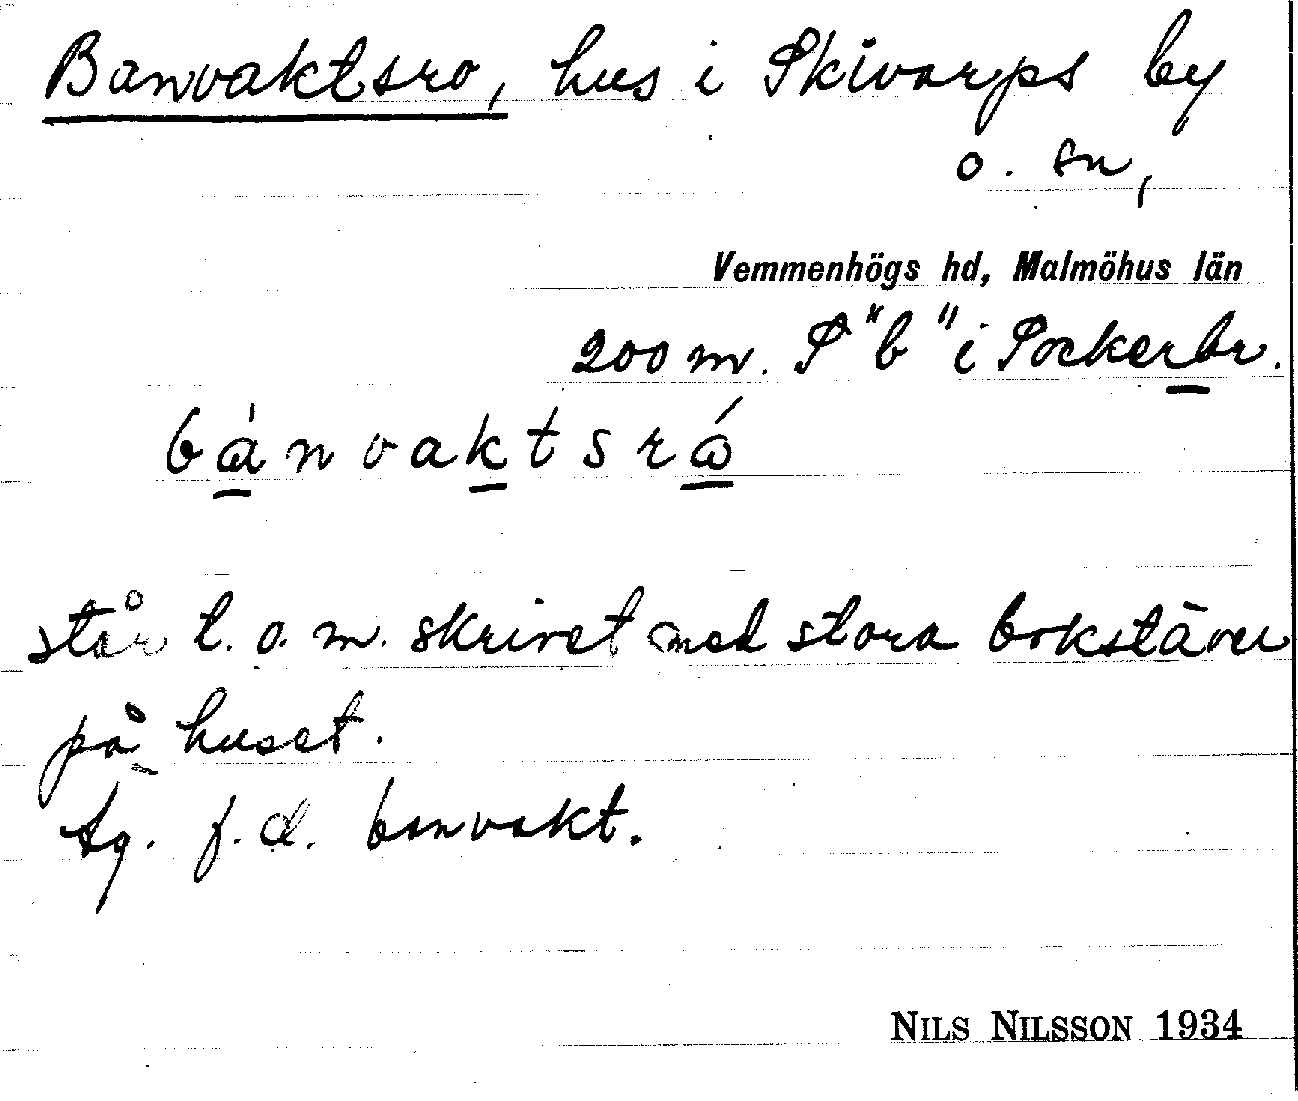 Banvaktsro, hus i Skivarps by
o. sn,
Vemmenhögs hd, Malmöhus län
200 m. S "b" i Sockerbr.
bànvaktsró
står t. o. m. skrivet med stora bokstäver
på huset.
Äg. f. d. banvakt.
NILS NILSSON 1934